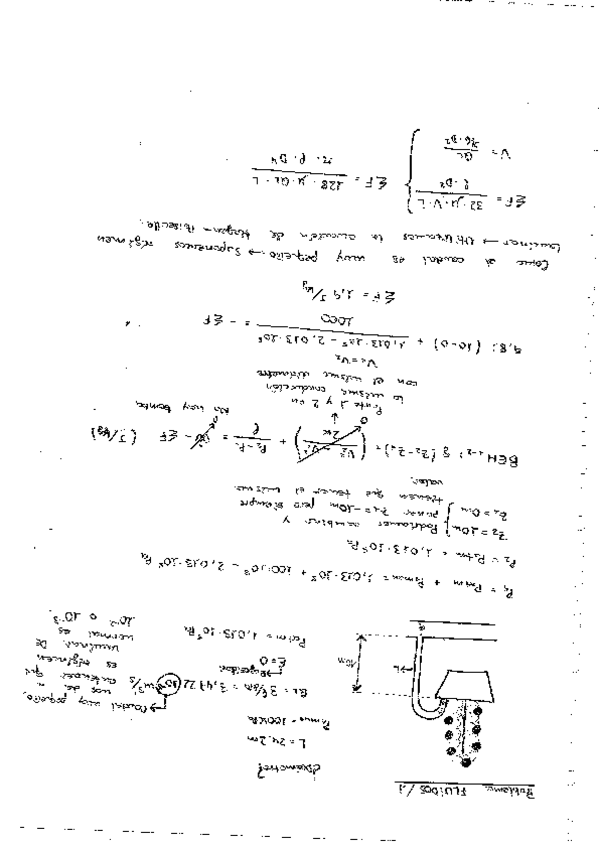 Problema FLUIDOS/1
¿Diámetro?
L = 24,2m
Pman = 100KPa
→ Caudal muy pequeño,
QL = 3⁄6m = 3,4722·10 m³/s
nos da a
entender que
es régimen
laminar. De
normal es
10⁻² o 10⁻³.
Rugosidad
ε=0
Patm = 1,013·10⁵ Pa
10m
L
P1 = Patm + Pman = 1,013·10⁵ + 100·10³ = 2,013·10⁵ Pa
P2 = Patm = 1,013·10⁵ Pa
Z2 = 10m
Z1 = 0m
Podríamos cambiar y
poner Z1 = -10m pero siempre
tienen que tener el mismo
valor.
BEM1-2: g (Z2-Z1) + (V2² - V1² / 2α) + P2-P1 / ρ = W - ΣF (J/kg)
0
0
No hay bomba
Punto 1 y 2 en
la misma conducción
con el mismo diámetro
V1=V2
9,81 (10-0) + 1,013·10⁵ - 2,013·10⁵ / 1000 = - ΣF
ΣF = 1,9 J/kg
Como el caudal es muy pequeño → Suponemos régimen
laminar → Utilizamos la ecuación de Hagen-Poiseuille.
ΣF = 32·μ·V·L / ρ·D²
V = QL / π/4·D²
ΣF = 128·μ·QL·L / π·ρ·D⁴